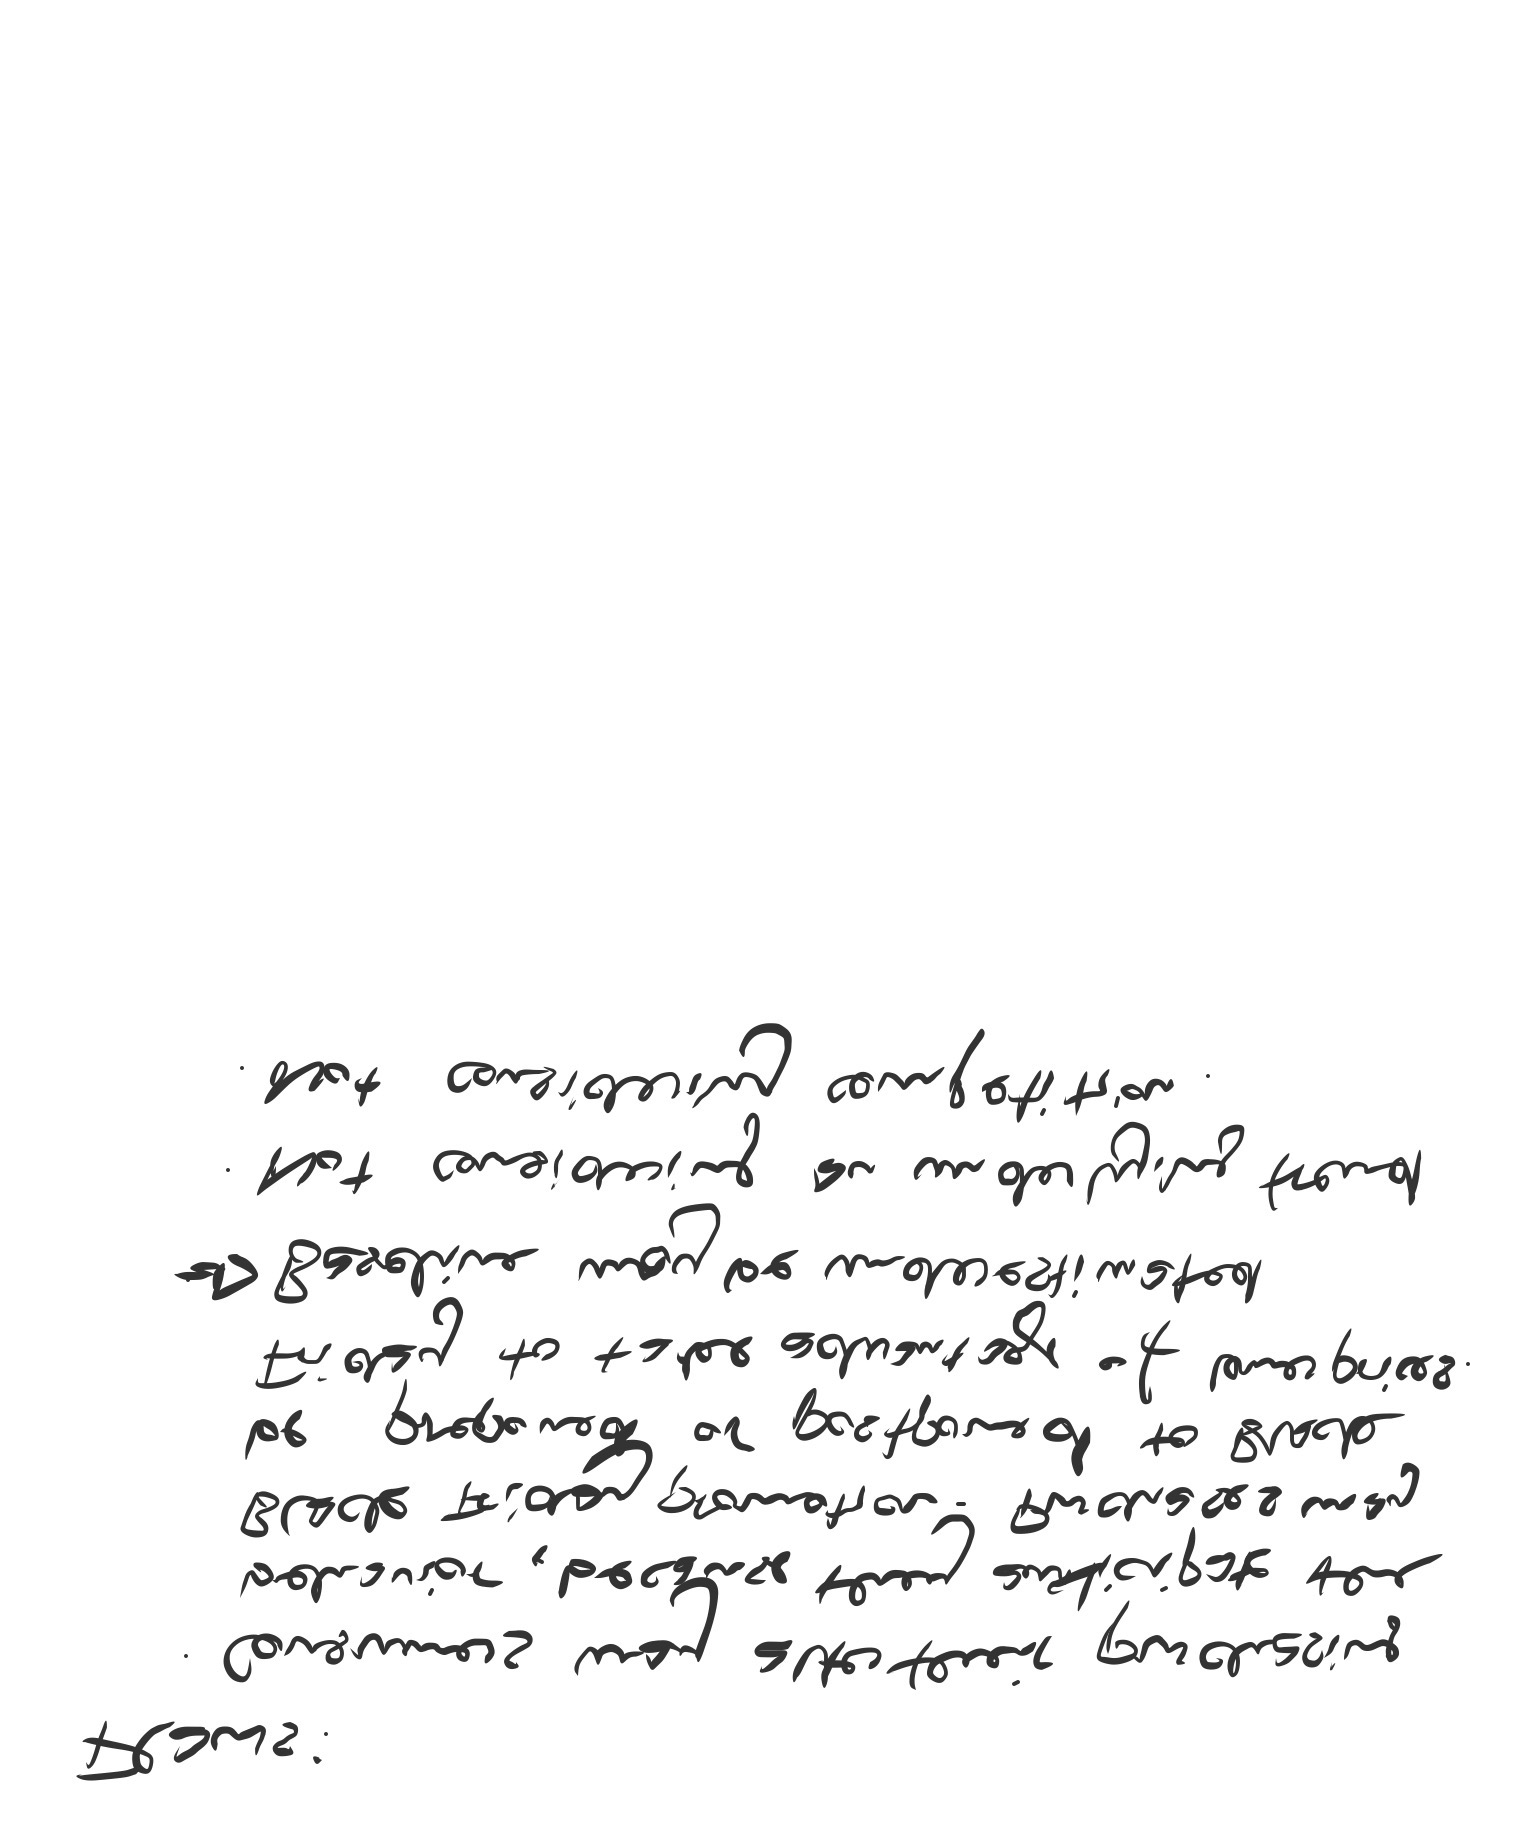 Flaws:
· Consumers may alter their purchasing
behavior, because they anticipate the
Black Friday promotion. Purchases may
be preponed or postponed to Black
Friday to take advantage of lower prices.
→ Baseline may be underestimated
· Not considering an underlying trend
· Not considering competition.